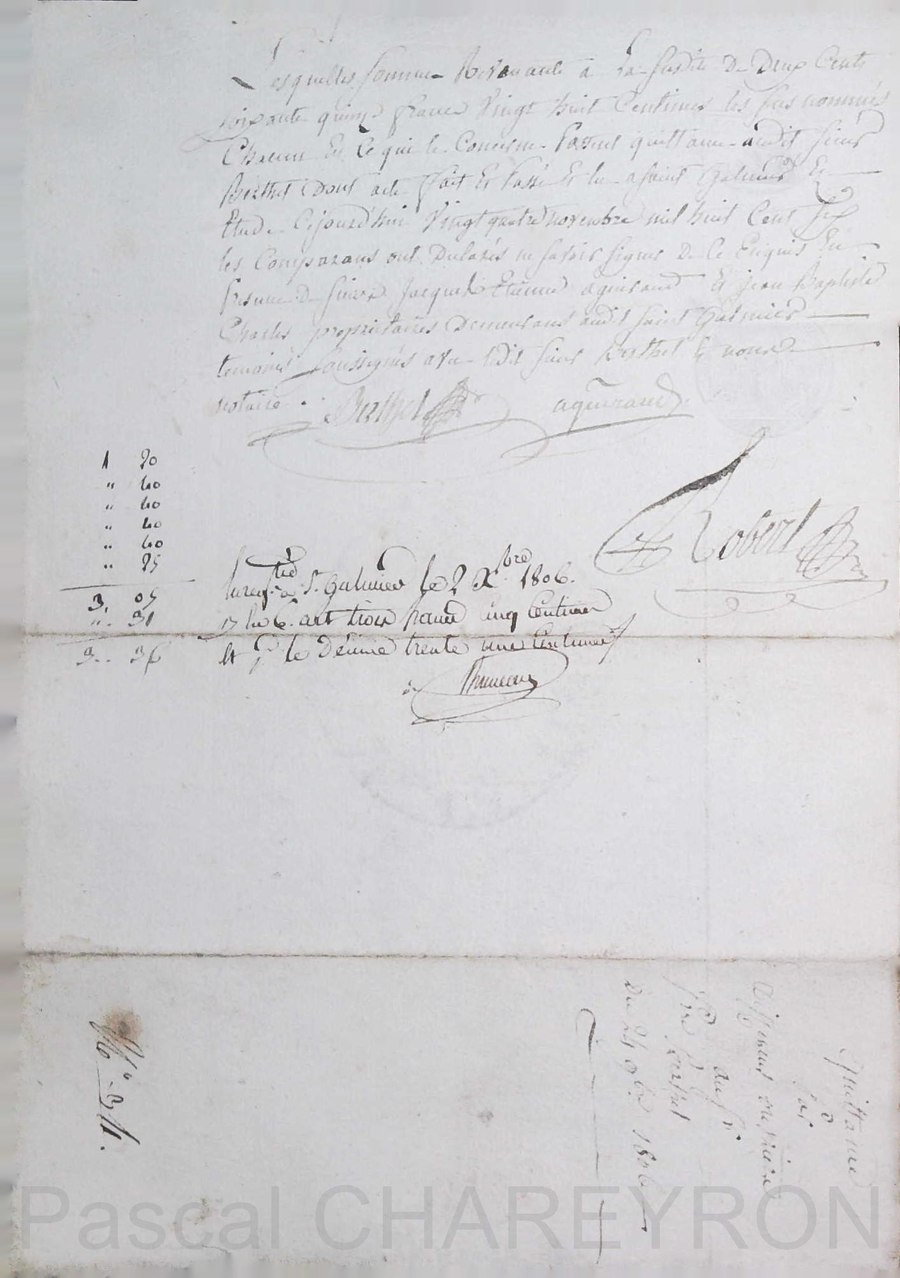 Lesquelles sommes Revenante à la susdite de Deux Cents
soixante quinze francs Vingt huit Centimes les sus nommés
Chacun En Ce qui le Concerne Passent quittance audit Sieur
Berthet Dont acte fait Et Passé Et lu a Saint Galmier En
Etude Cejourd'hui Vingt quatre novembre mil huit Cent Six
les Comparans ont Déclarés ne savoir signer De Ce Enquis En
Presence De Sieurs Jacques Etienne aguiraud Et jean Baptiste
Charles propriétaires Demeurans audit Saint Galmier
temoins soussignés avec ledit Sieur Berthet & nous
notaire
Berthet aguiraud
Robert
1 20
" 40
" 40
" 40
" 40
" 25
3, 05
". 31
3.. 36
Enreg.tré à St. Galmier le 2 Xbre 1806.
art trois francs cinq Centimes
et pr le Décime trente une Centimes
Quittance
Par
Differents ouvriers
au Sr.
Berthet
Du 24 9bre 1806
Pascal CHAREYRON